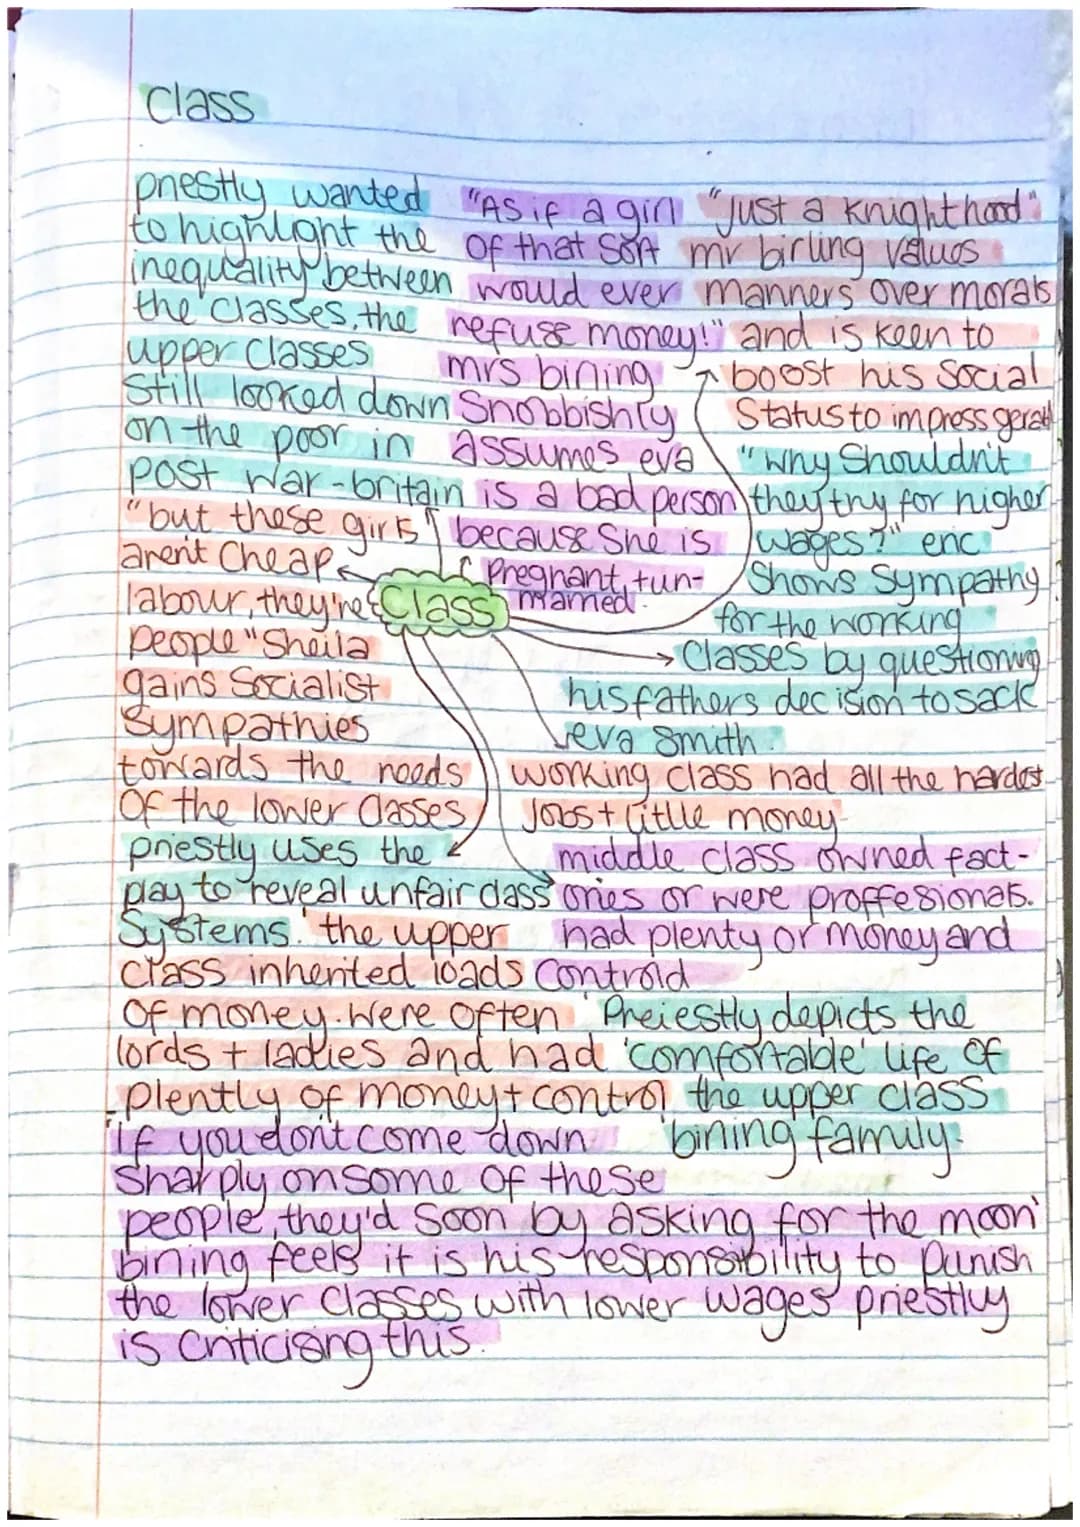 Class
priestly wanted
to highlight the
inequality between
the classes, the
upper classes
still looked down
on the poor in
post war-britain
"As if a girl
of that sort
would ever
refuse money!"
mrs birling
snobbishly
assumes eva
is a bad person
because she is
pregnant + un-
married.
"just a knighthood"
mr birling values
manners over morals
and is keen to
boost his social
status to impress gerald
"why shouldn't
they try for higher
wages?" eric
shows sympathy
for the working
classes by questioning
his fathers decision to sack
eva smith.
"but these girls
aren't cheap
labour, they're
people" sheila
gains socialist
sympathies
towards the needs
of the lower classes
Class
working class had all the hardest
jobs + little money
priestly uses the
play to reveal unfair class
systems.
middle class owned fact-
ories or were proffesionals.
had plenty of money and
controld
the upper
class inherited loads
of money. were often
lords + ladies and had
plently of money + control
Preiestly depicts the
'comfortable' life of
the upper class
birling family.
'if you don't come down
sharply on some of these
people, they'd soon by asking for the moon'
birling feels it is his responsibility to punish
the lower classes with lower wages priestluy
is criticising this.